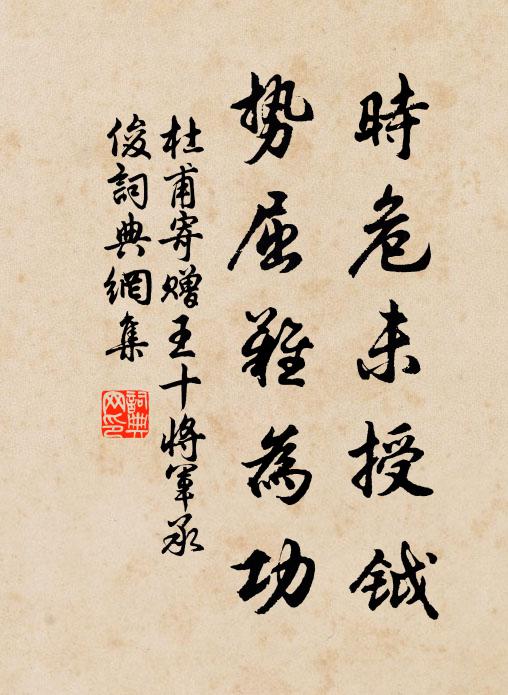 時危未授鉞
勢屈難為功
杜甫寄贈王十將軍承
俊詞典網集
詞典
网印